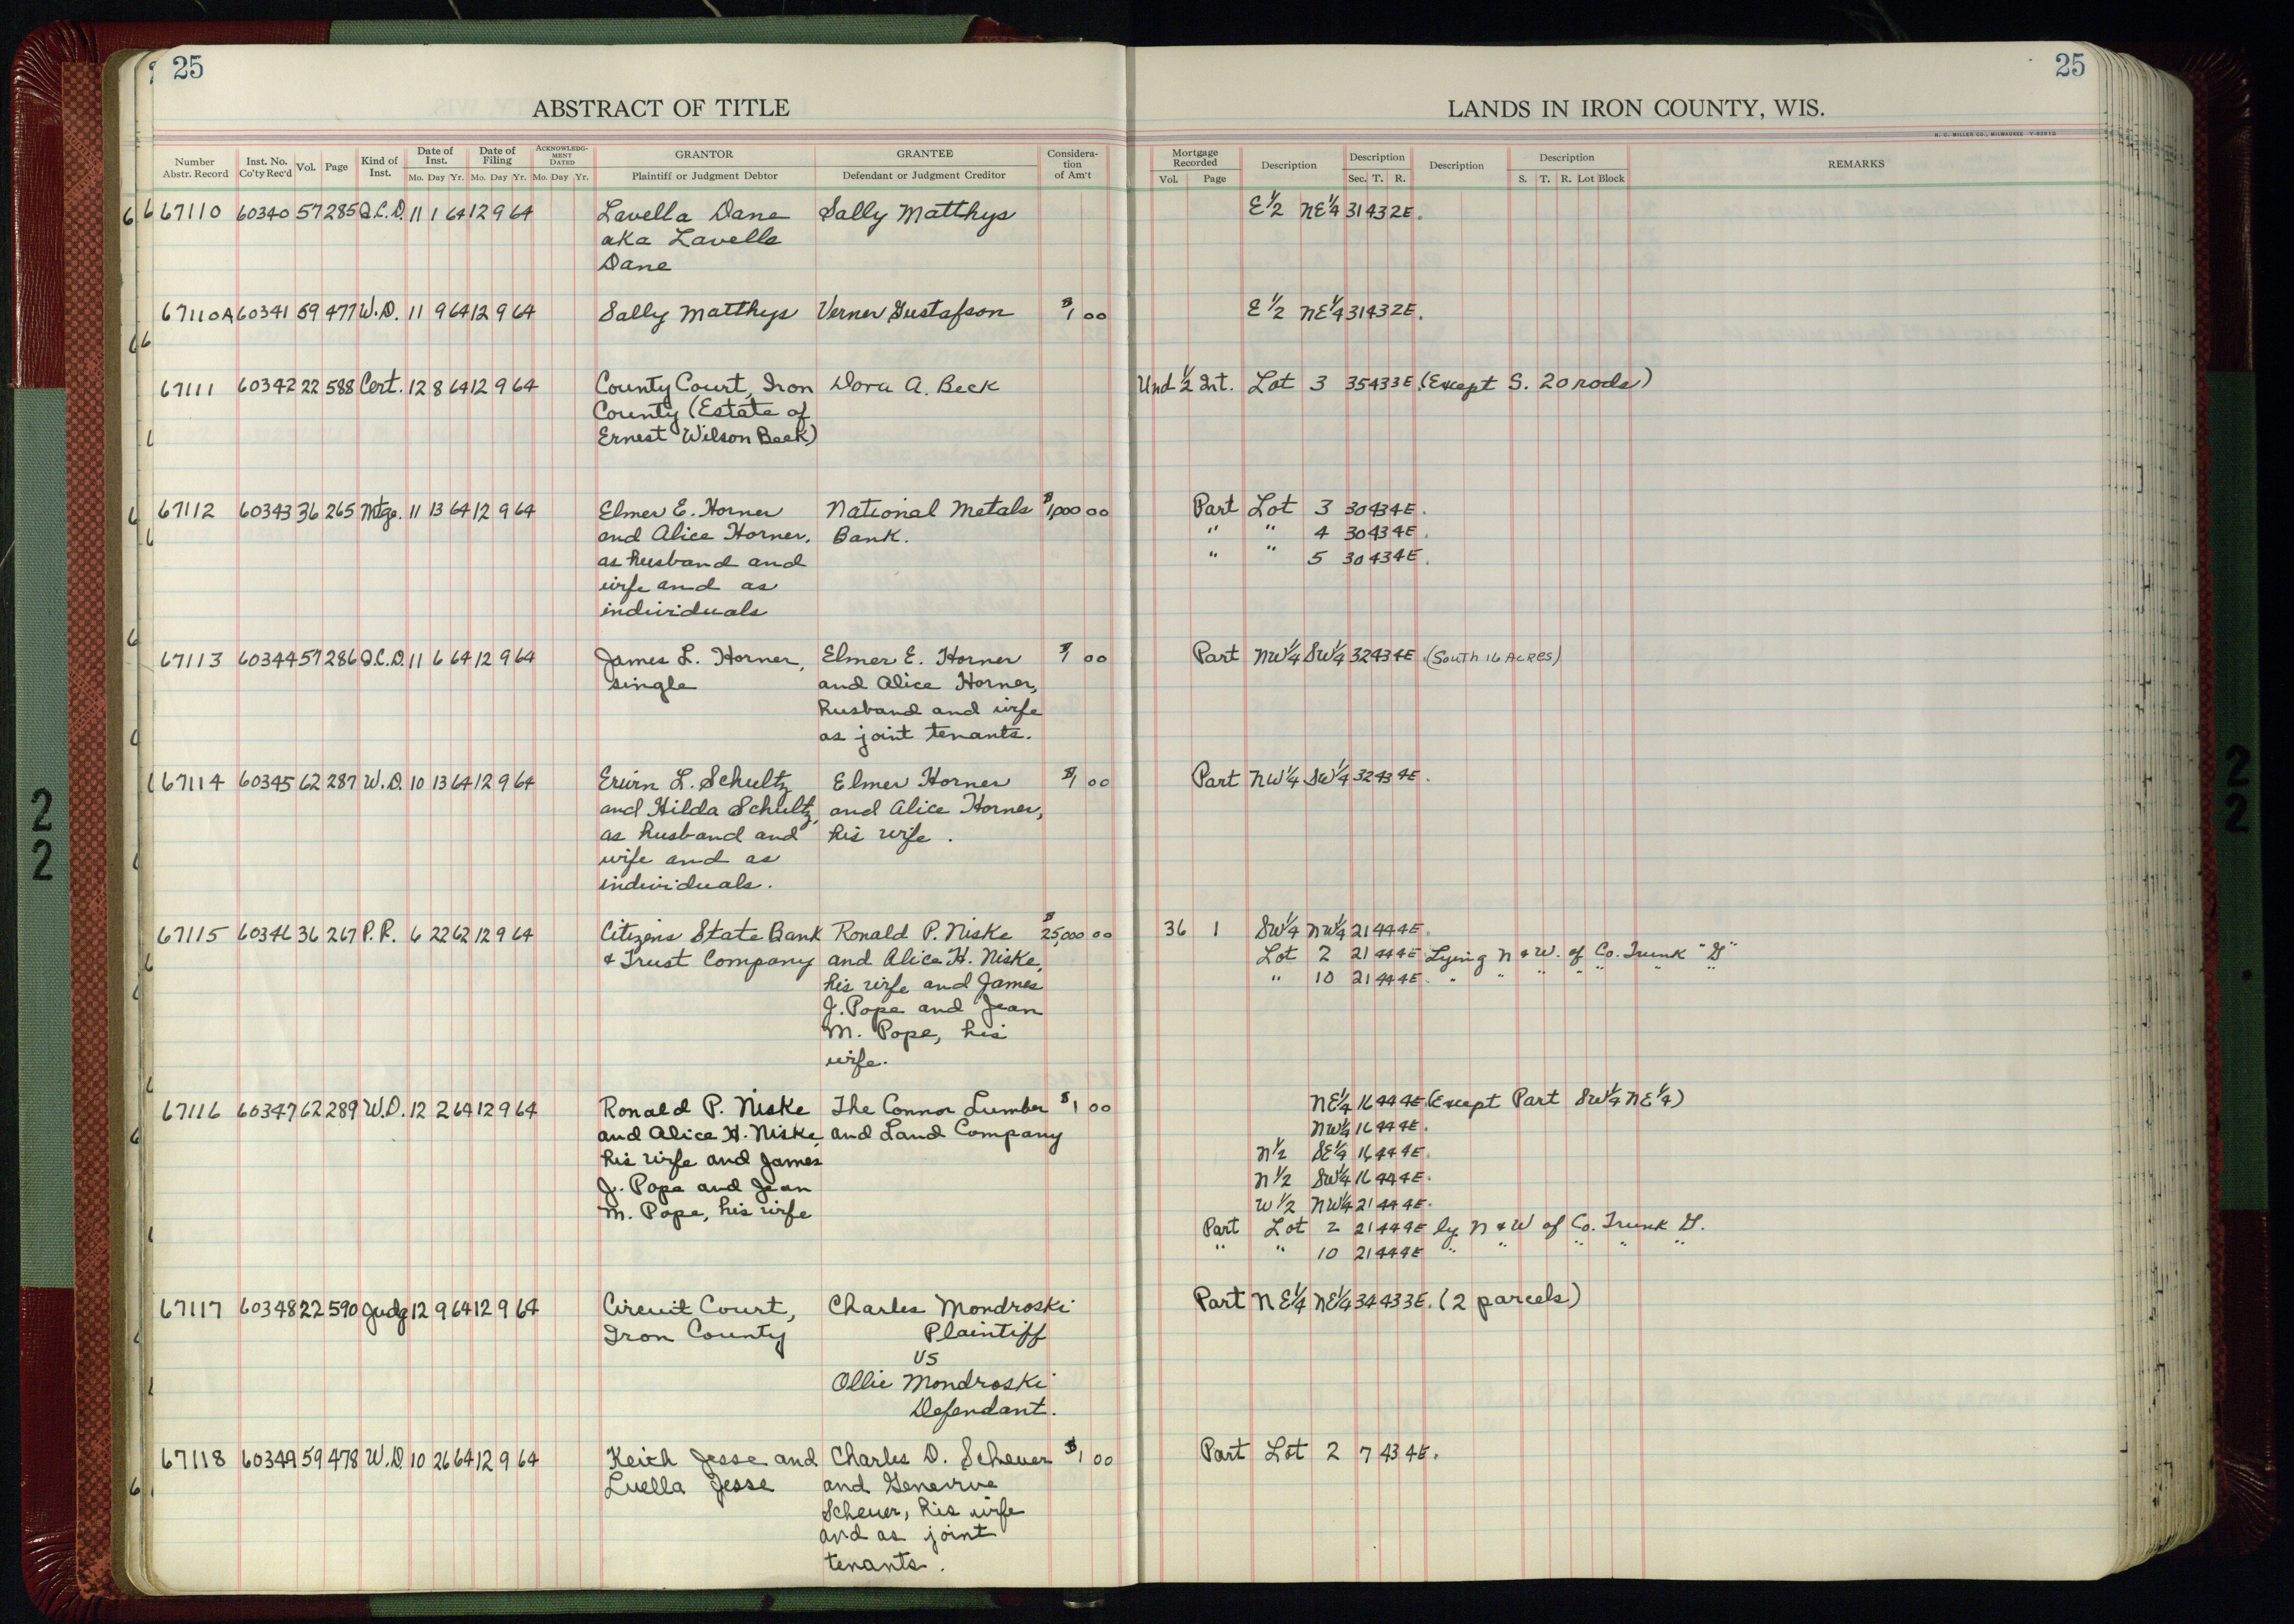 25
25
ABSTRACT OF TITLE
LANDS IN IRON COUNTY, WIS.
H. C. MILLER CO., MILWAUKEE
Number Abstr. Record
Inst. No. Co'ty Rec'd
Vol.
Page
Kind of Inst.
Date of Inst.
Mo. Day Yr.
Date of Filing
Mo. Day Yr.
ACKNOWLEDGMENT DATED
Mo. Day Yr.
GRANTOR
Plaintiff or Judgment Debtor
GRANTEE
Defendant or Judgment Creditor
Consideration of Am't
Mortgage Recorded
Vol. Page
Description
Description
Sec. T. R.
Description
Description
S. T. R. Lot Block
REMARKS
67110 60340 57 285 Q.C.D. 11 1 64 12 9 64 Lavella Dane Sally Matthys E 1/2 NE 1/4 31 43 2E.
aka Lavella
Dane
67110A 60341 59 477 W.D. 11 9 64 12 9 64 Sally Matthys Verner Gustafson $1 00 E 1/2 NE 1/4 31 43 2E.
67111 60342 22 588 Cert. 12 8 64 12 9 64 County Court, Iron Dora A. Beck Und 1/2 Int. Lot 3 35 43 3E. (Except S. 20 rods)
County (Estate of
Ernest Wilson Beck)
67112 60343 36 265 Mtge. 11 13 64 12 9 64 Elmer E. Horner National Metals $1,000 00 Part Lot 3 30 43 4E.
and Alice Horner, Bank. " " 4 30 43 4E.
as husband and " " 5 30 43 4E.
wife and as
individuals
67113 60344 57 286 Q.C.D. 11 6 64 12 9 64 James L. Horner, Elmer E. Horner $1 00 Part NW 1/4 SW 1/4 32 43 4E. (South 16 Acres)
single and Alice Horner,
husband and wife
as joint tenants.
67114 60345 62 287 W.D. 10 13 64 12 9 64 Erwin L. Schultz Elmer Horner $1 00 Part NW 1/4 SW 1/4 32 43 4E.
and Hilda Schultz, and Alice Horner,
as husband and his wife.
wife and as
individuals.
67115 60346 36 267 P.R. 6 22 62 12 9 64 Citizens State Bank Ronald P. Niske $25,000 00 36 1 SW 1/4 NW 1/4 21 44 4E.
& Trust Company and Alice H. Niske, Lot 2 21 44 4E Lying N & W. of Co. Trunk "G"
his wife and James " 10 21 44 4E. " " " " " "
J. Pope and Jean
M. Pope, his
wife.
67116 60347 62 289 W.D. 12 2 64 12 9 64 Ronald P. Niske The Connor Lumber $1 00 NE 1/4 16 44 4E. (Except Part SW 1/4 NE 1/4)
and Alice H. Niske, and Land Company NW 1/4 16 44 4E.
his wife and James N 1/2 SE 1/4 16 44 4E.
J. Pope and Jean N 1/2 SW 1/4 16 44 4E.
M. Pope, his wife W 1/2 NW 1/4 21 44 4E.
Part Lot 2 21 44 4E ly N & W of Co. Trunk G.
" " 10 21 44 4E " " " " "
67117 60348 22 590 Judg 12 9 64 12 9 64 Circuit Court, Charles Mondroski Part NE 1/4 NE 1/4 34 43 3E. (2 parcels)
Iron County Plaintiff
vs
Ollie Mondroski
Defendant.
67118 60349 59 478 W.D. 10 26 64 12 9 64 Keith Jesse and Charles D. Scheuer $1 00 Part Lot 2 7 43 4E.
Luella Jesse and Genevive
Scheuer, his wife
and as joint
tenants.
22
22